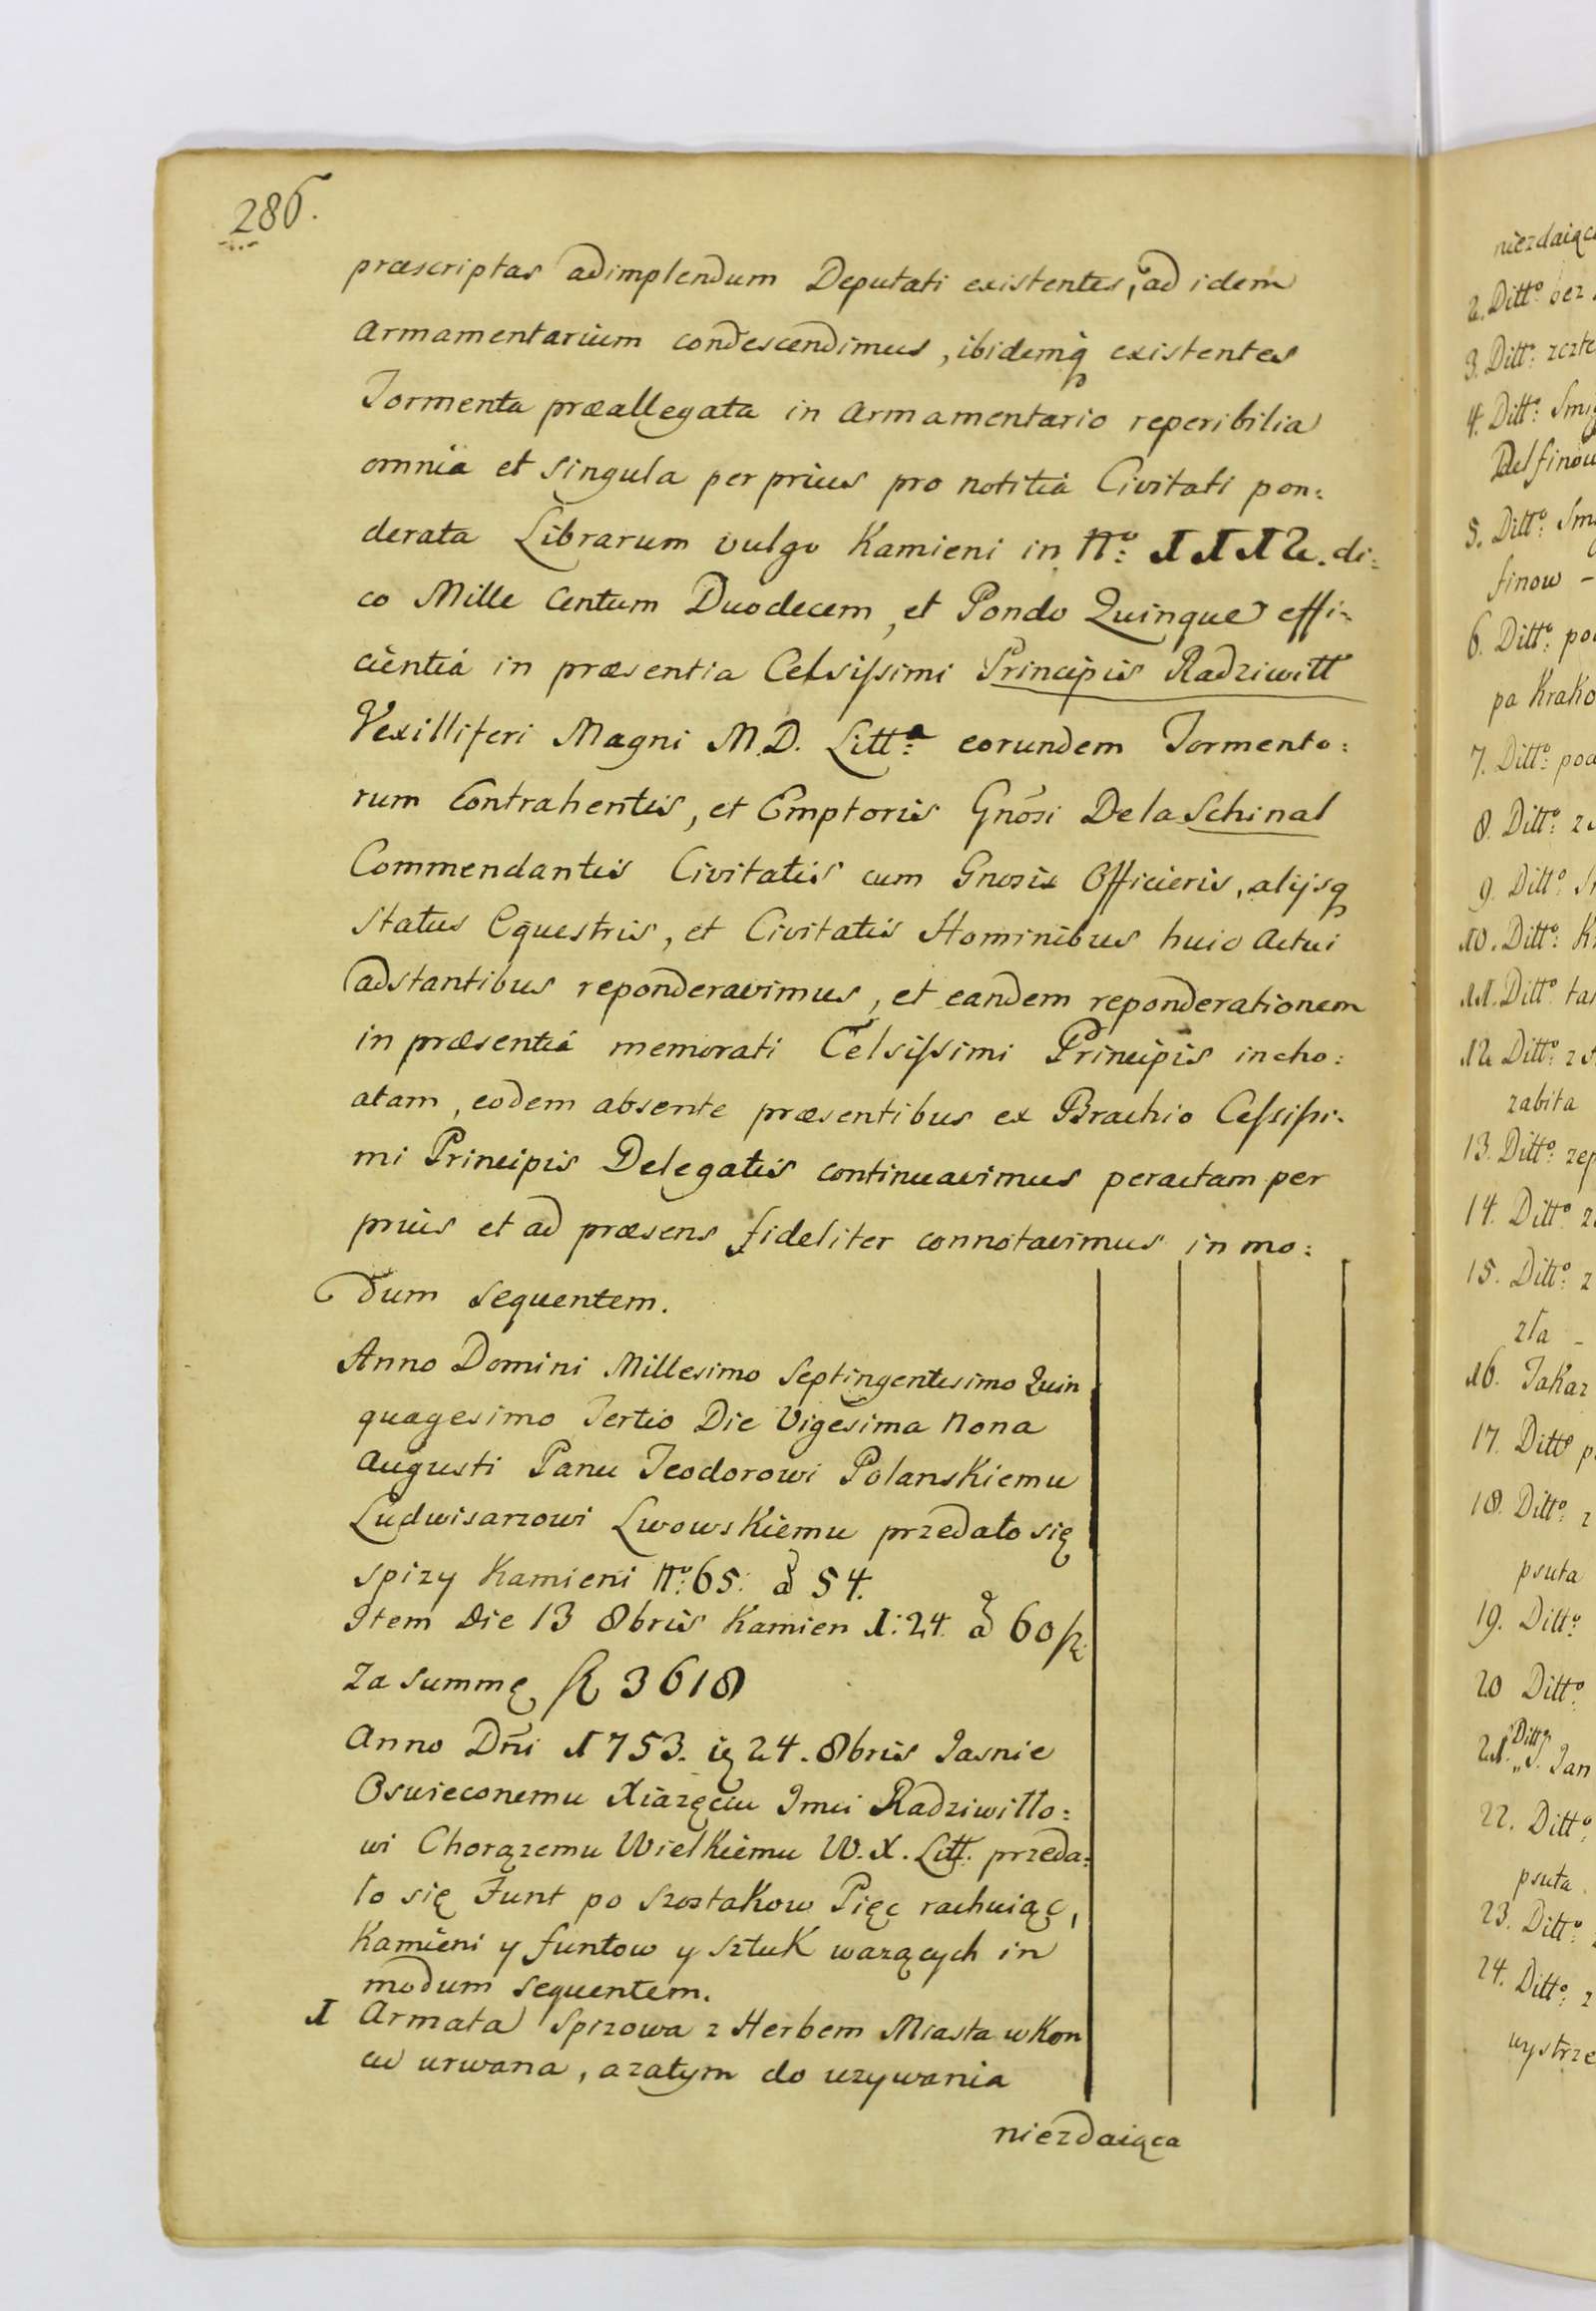 286.
præscriptas adimplendum Deputati existentes, ad idem
Armamentarium condescendimus, ibidemq́ existentes
Tormenta præallegata in Armamentario reperibilia
omnia et singula per prius pro notitiá Civitati pon:
derata Librarum vulgo Kamieni in Nº: 1112. di:
co Mille Centum Duodecem, et Pondo Quinque effi:
cientiá in præsentia Celsissimi Principis Radziwiłł
Vexilliferi Magni M.D. Littª: eorundem Tormento:
rum Contrahentis, et Emptoris Gnõsi Dela Schinal
Commendantis Civitatis cum Gnosis Officieris, alijsq
Status Equestris, et Civitatis Hominibus huic Actui
adstantibus reponderavimus, et eandem reponderationem
in præsentiá memorati Celsissimi Principis incho:
atam, eodem absente præsentibus ex Brachio Celsissi:
mi Principis Delegatis continuavimus peractam per
prius et ad præsens fideliter connotavimus in mo:
dum sequentem.
Anno Domini Millesimo Septingentesimo Quin
quagesimo Tertio Die Vigesima Nona
Augusti Panu Teodorowi Polanskiemu
Ludwisarzowi Lwowskiemu przedało się
spizy Kamieni Nº: 65: â 54.
Item Die 13 8bris Kamien 1: 24. â 60 fl:
Za summę fl 3618
Anno Dñi 1753. 24. 8bris Jasnie
Oswieconemu Xiazęciu Jmci Radziwiłło:
wi Chorązemu Wielkiemu W.X. Litt. przeda:
ło się Funt po szostakow Pięc rachuiąc,
Kamieni y funtow y sztuk wazących in
modum sequentem.
1 Armata Spizowa z Herbem Miasta w Kon
cu urwana, azatym do uzywania
niezdaiąca
niezdaiąca
2. Dittº: bez
3. Dittº:
4. Dittº:
Delfinow
5. Dittº:
finow -
6. Dittº:
pa
7. Dittº:
8. Dittº:
9. Dittº:
10. Dittº:
11. Dittº:
12 Dittº:
zabita
13. Dittº:
14. Dittº:
15. Dittº: z
zła -
16. Takaz
17. Dittº
18. Dittº: z
psuta
19. Dittº:
20 Dittº:
21. Dittº: S. Jan
22. Dittº:
psuta
23. Dittº:
24. Dittº: z
wystrze